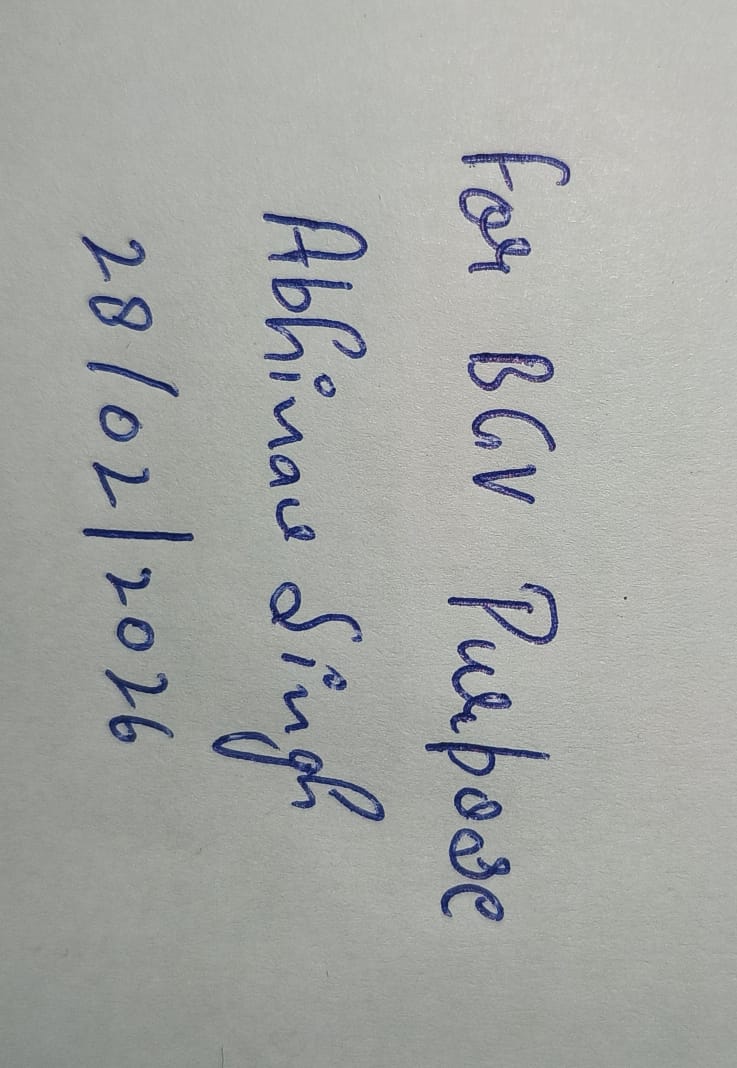 For BGV Purpose
Abhinav Singh
28/02/2026